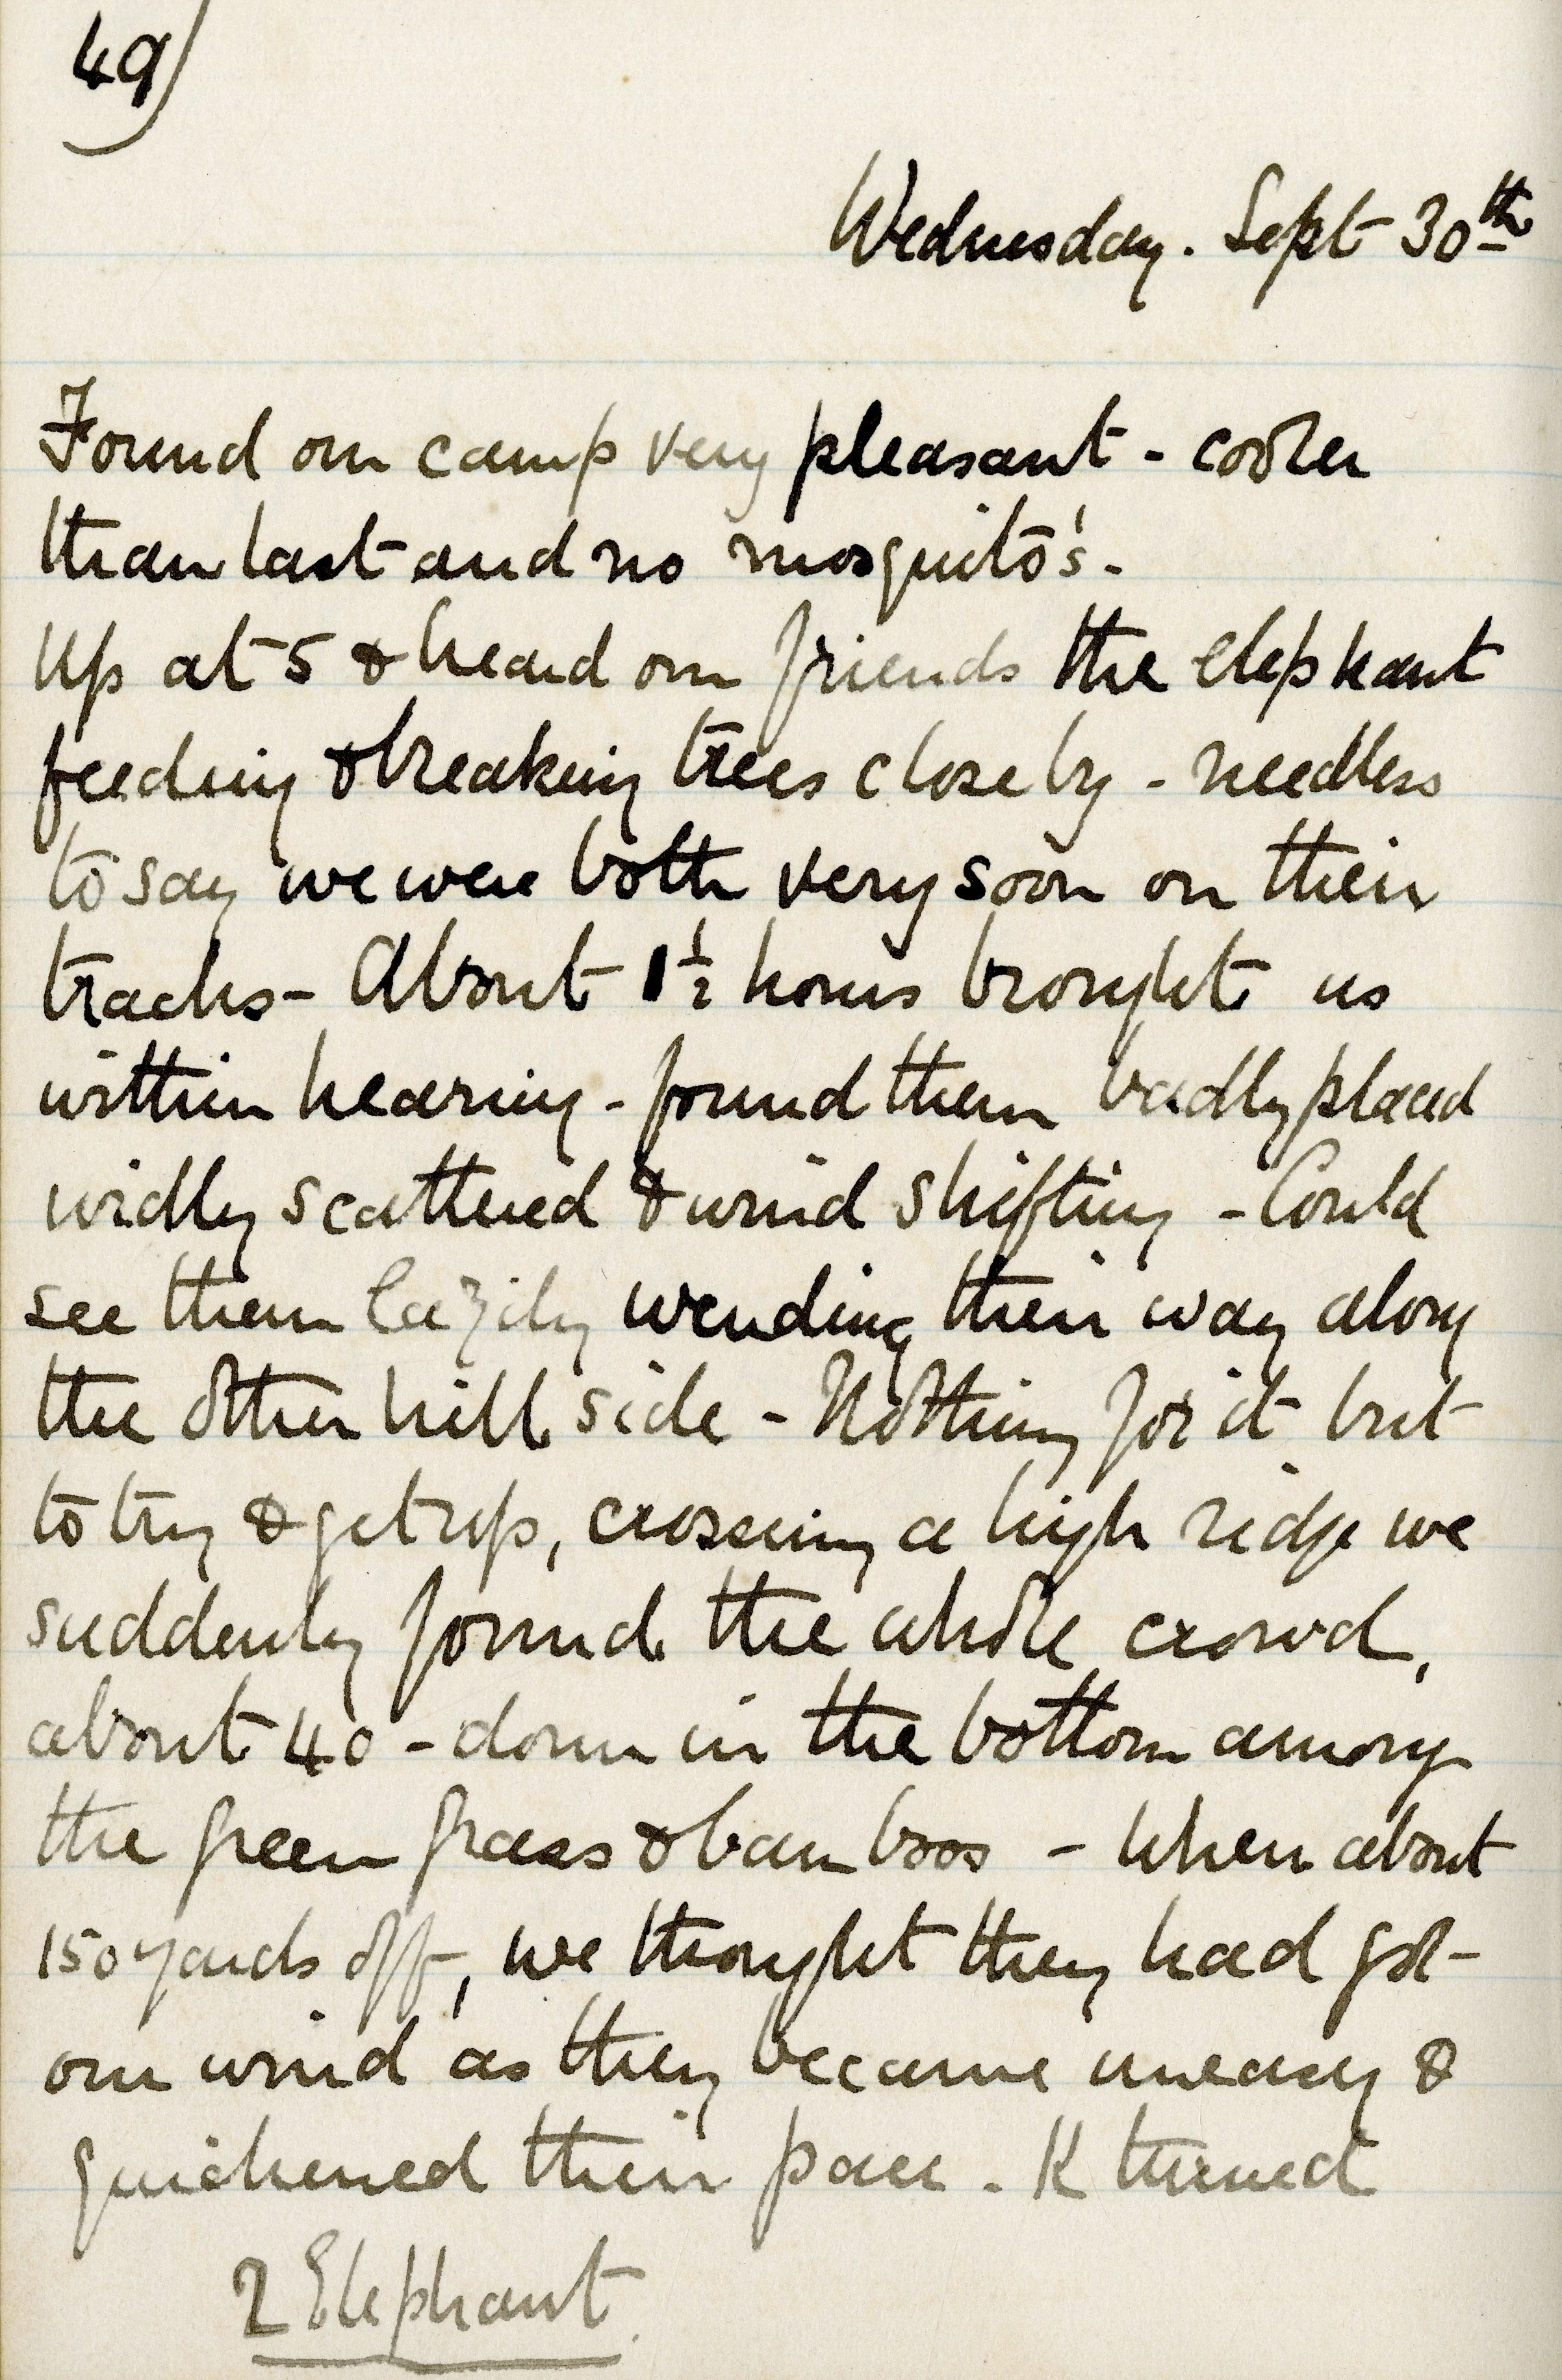 49)
Wednesday. Sept 30th
Found our camp very pleasant - cooler
than last and no mosquito's.
Up at 5 & heard our friends the elephant
feeding & breaking trees close by - needless
to say we were both very soon on their
tracks - About 1½ hours brought us
within hearing - found them badly placed
widly scattered & wind shifting - Could
see them lazily wending their way along
the other hill side - Nothing for it but
to try & get up, crossing a high ridge we
suddenly found the whole crowd,
about 40 - down in the bottom among
the green grass & bamboos - When about
150 yards off, we thought they had got
our wind as they became uneasy &
quickened their pace - K turned
2 Elephant.